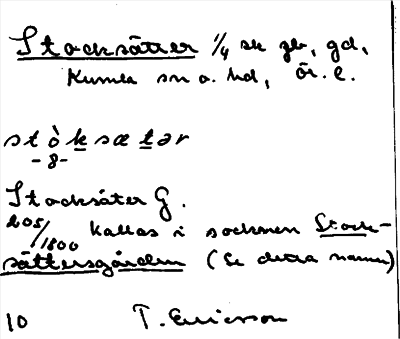 Stocksätter 1/4 sk gb, gd,
Kumla sn o. hd, Ör. l.
stòksætər
-8-
Stocksäter G.
205/1800 kallas i socknen Stock-
sättersgården (Se detta namn)
10 T. Ericsson